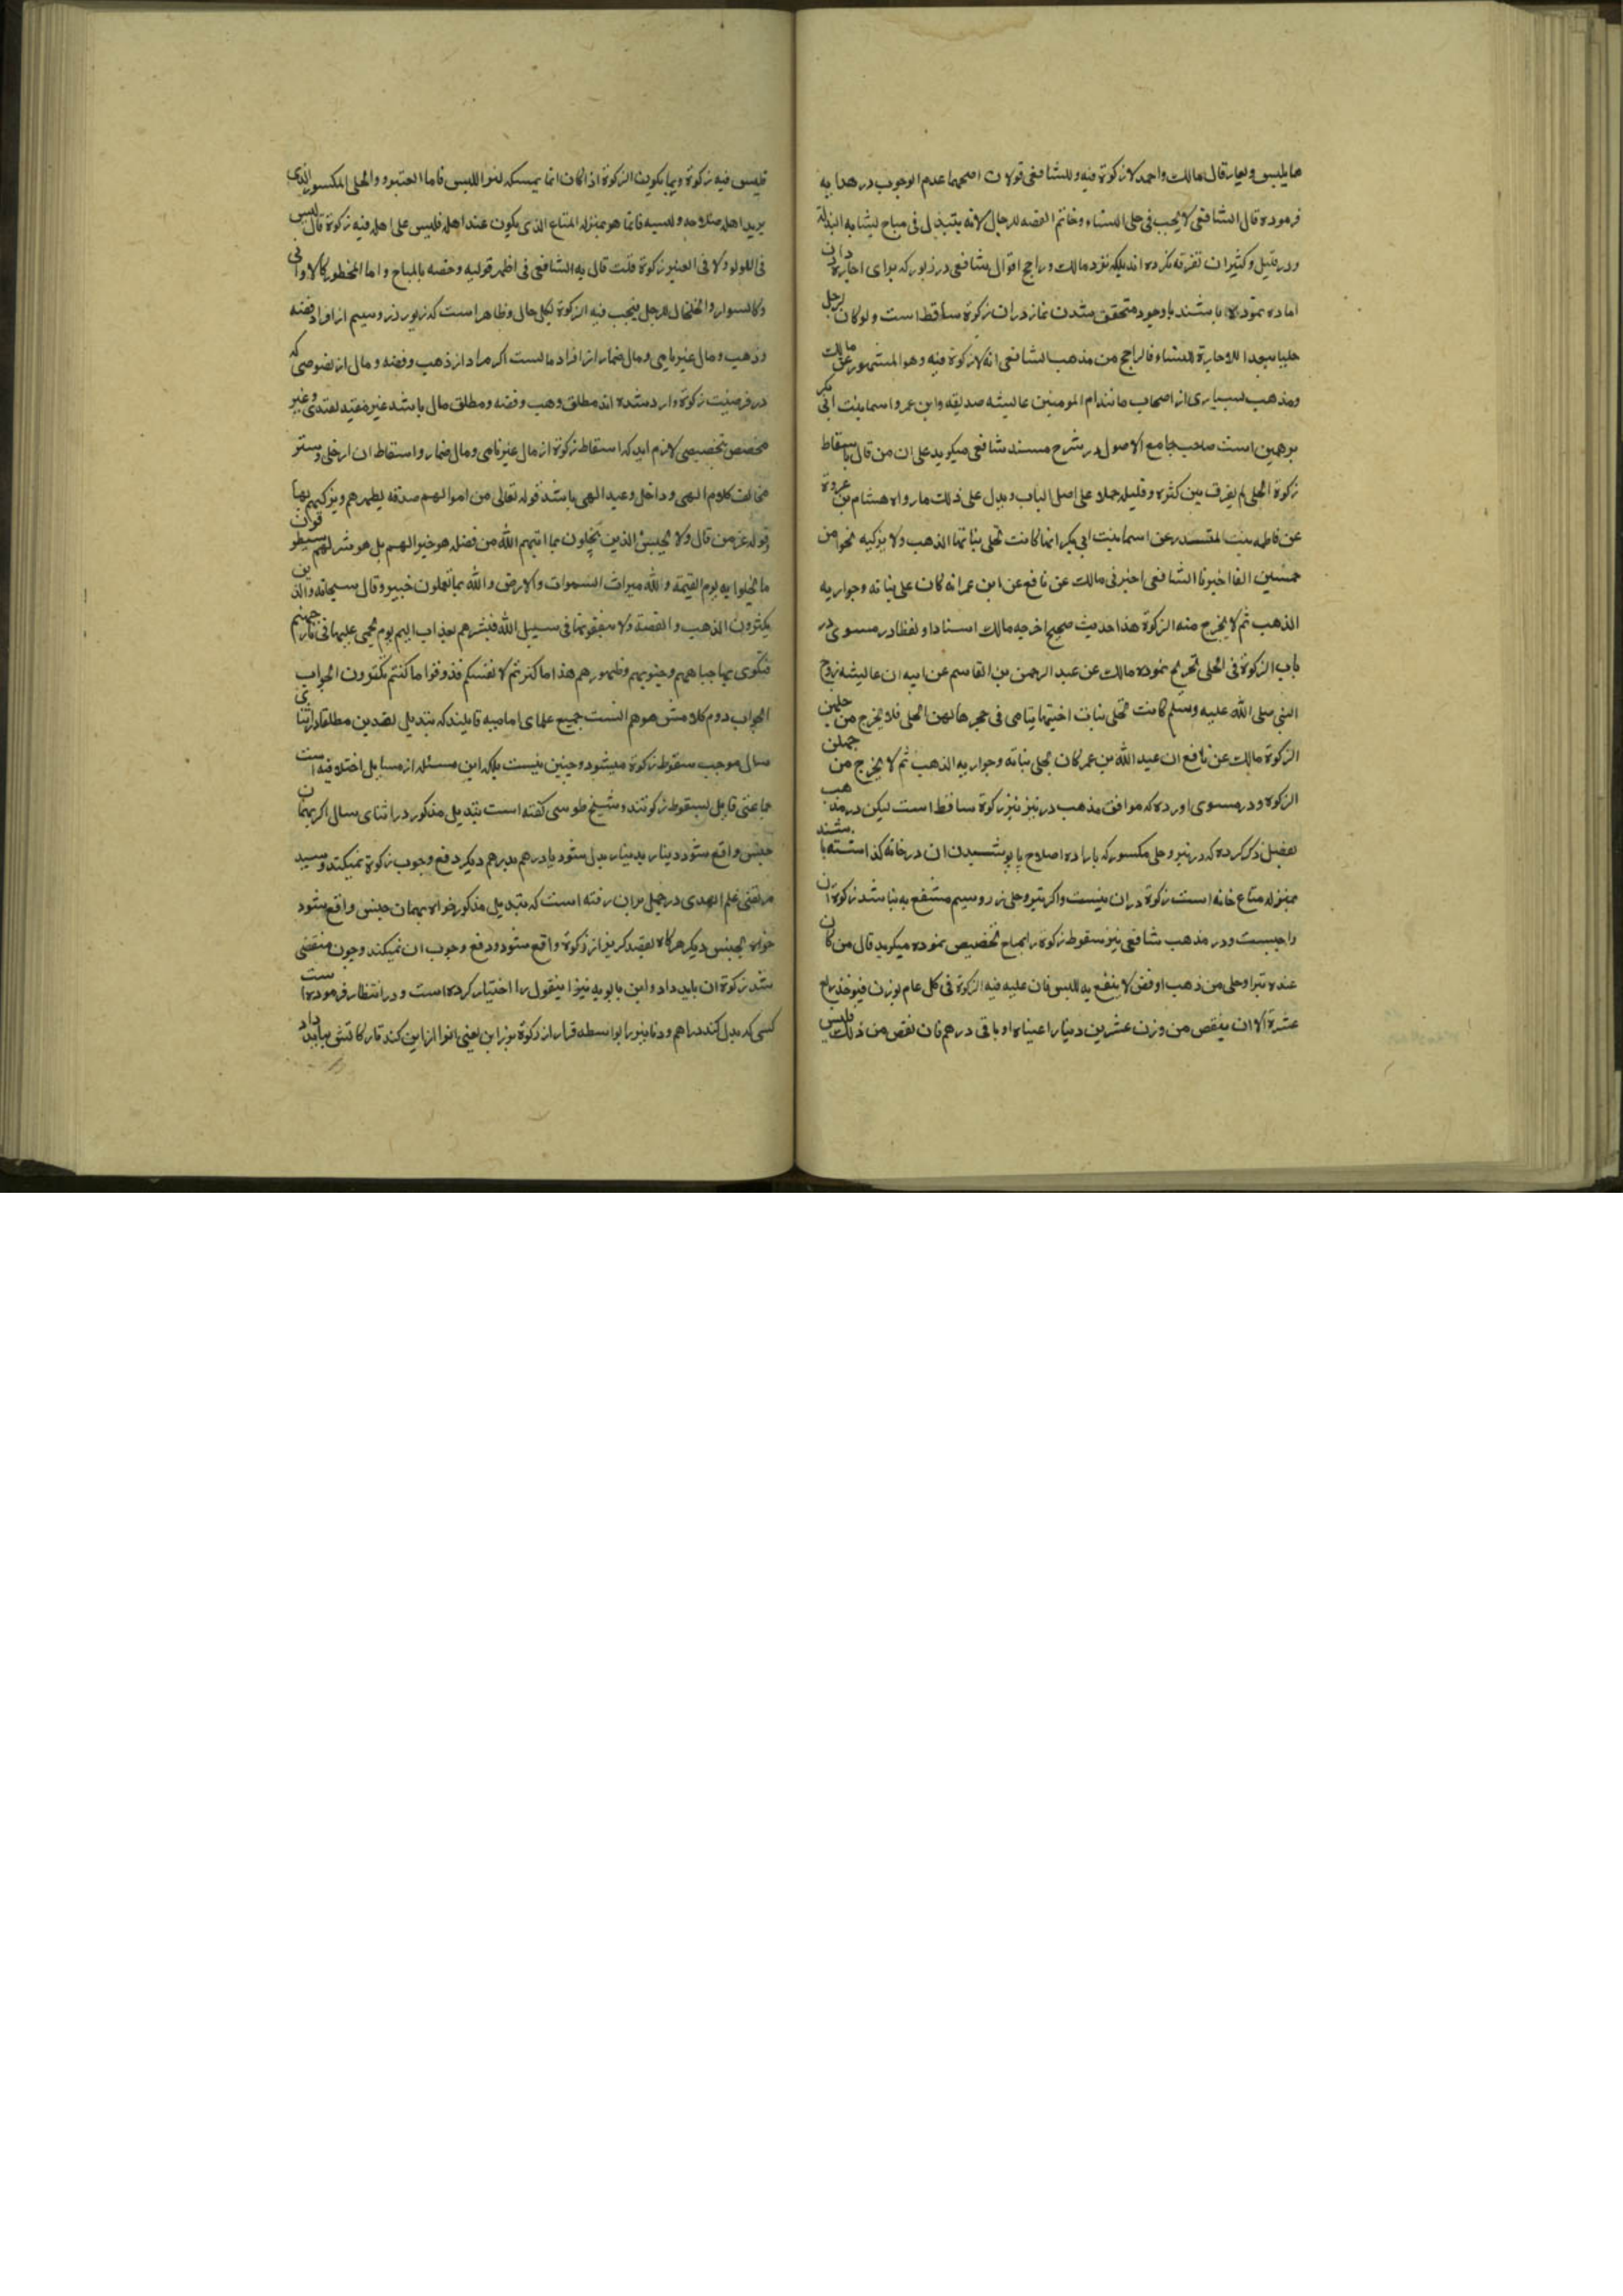 ما یلبس و یعار قال مالک و احمد لا زکوة فیه و للشافعی قولان اصحهما عدم الوجوب در هدایه
فرموده قال الشافعی لا یجب فی حلی النساء و خاتم الفضه للرجال لانه مبتذل فی مباح فشابه ثیاب البذلة
و در قلیل و کثیر ان تفرقه نکرده اند بلکه نزد مالک و راجح اقوال شافعی در زیور که برای اجاره دادن
اماده نموده باشند با وجود متحقق شدن نماء در ان زکوة ساقط است و لو کان لرجل
حلیا معدا للاجارة للنساء فالراجح من مذهب الشافعی انه لا زکوة فیه و هو المشهور عن مالک
و مذهب بسیاری از اصحاب مانند ام المومنین عایشه صدیقه و ابن عمر و اسما بنت ابی بکر
بر همین است صاحب جامع الاصول در شرح مسند شافعی میکوید علی ان من قال باسقاط
زکوة الحلی لم یفرق بین کثره و قلیله حملا علی اصل الباب و یدل علی ذلک ما رواه هشام بن عروة
عن فاطمه بنت المنذر عن اسما بنت ابی بکر انها کانت تحلی بناتها الذهب ولا یزکیه نحوا من
خمسین الفا اخبرنا الشافعی اخبرنی مالک عن نافع عن ابن عمر انه کان علی بناته و جواریه
الذهب ثم لا یخرج منه الزکوة هذا حدیث صحیح اخرجه مالک اسنادا و لفظا در مسوی در
باب الزکوة فی الحلی تخریج نموده مالک عن عبد الرحمن بن القاسم عن ابیه ان عایشه زوج
النبی صلی الله علیه وسلم کانت تحلی بنات اخیها یتامی فی حجرها لهن الحلی فلا یخرج من حلیهن
الزکوة مالک عن نافع ان عبد الله بن عمر کان یحلی بناته و جواریه الذهب ثم لا یخرج من حلیهن
الزکوه و در مسوی اورده که موافق مذهب در تبر نیز زکوة ساقط است لیکن در مذهب
تفصیل ذکر کرده که در تبر و حلی مکسور که باراده اصلاح یا پوشیدن ان در خانه کذاشته باشند
بمنزله متاع خانه است زکوة دران نیست و اکر تبر و حلی زر و سیم منتفع به نباشد زکوة ان
واجبست و در مذهب شافعی نیز سقوط زکوه را بمباح تخصیص نموده میکوید قال من کان
عنده تبر او حلی من ذهب او فضه لا ینتفع به للبس فان علیه فیه الزکوة فی کل عام یوزن فیوخذ ربع
عشره الا ان ینقص من وزن عشرین دینارا عینا او مأتی درهم فان نقص من ذلک فلیس
فلیس فیه زکوة و انما یکون الزکوة اذا کان انما یمسکه لغیر اللبس فاما التبر و الحلی المکسور الذی
یرید اهله صلاحه و لبسه فانما هو بمنزله المتاع الذی یکون عند اهله فلیس علی اهله فیه زکوة قال لیس
فی اللولو ولا فی العنبر زکوة قلت قال به الشافعی فی اظهر قولیه و خصه بالمباح و اما المحظور کالاوانی
و کالسوار و الخلخال للرجل فیجب فیه الزکوة لکل حال و ظاهر است که زیور زر و سیم از افراد فضه
و ذهب و مال غیر نامی و مال ضمار از افراد مالست اکر مراد از ذهب و فضه و مال از نصوصی که
در فرضیت زکوة وارد شده اند مطلق ذهب و فضه و مطلق مال باشد غیر مقید بقیدی و غیر
مخصص بتخصیصی لازم اید که اسقاط زکوة از مال غیر نامی و مال ضمار و اسقاط ان از حلی و ستر
مخالف کلام الهی و داخل وعید الهی باشد قوله تعالی من اموالهم صدقه یطهرهم و یزکیهم بها
و قوله عز من قال ولا یحسبن الذین یبخلون بما اتیهم الله من فضله هو خیرا لهم بل هو شر لهم سیطوقون
ما بخلوا به یوم القیمة و الله میراث السموات و الارض و الله بما تعملون خبیر و قال سبحانه و الذین
یکنزون الذهب و الفضة ولا ینفقونها فی سبیل الله فبشرهم بعذاب الیم یوم یحمی علیها فی نار جهنم
فتکوی بها جباههم و جنوبهم و ظهورهم هذا ما کنزتم لانفسکم فذوقوا ما کنتم تکنزون الجواب
الجواب دوم کلامش موهم انست جمیع علمای امامیه قایلند که تبدیل نقدین مطلقا در اثنای
سال موجب سقوط زکوة میشود و چنین نیست بلکه این مسئله از مسایل اختلافیه است
جماعتی قایل بسقوط زکوتند و شیخ طوسی کفته است تبدیل مذکور در اثنای سال اکر بهمان
جنس واقع شود دینار بدینار بدل شود یا درهم بدرهم دیکر دفع وجوب زکوة نمیکند و سید
مرتضی علم الهدی در جمل بران رفته است که تبدیل مذکور خواه بهمان جنس واقع شود
خواه بجنس دیکر هرکاه بقصد کریز از زکوة واقع شود دفع وجوب ان نمیکند و چون منقضی
شد زکوة ان باید داد و ابن بابویه نیز اینقول را اختیار کرده است و در انتظار فرموده است
کسی که بدل کند دراهم و دنانیر را بواسطه فرار از زکوة